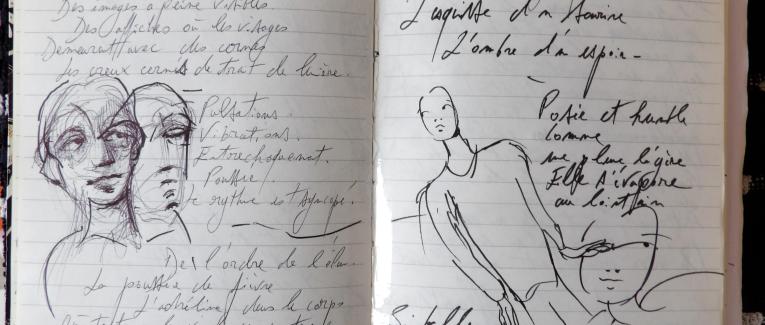 Des images à peine visibles.
Des affiches où les visages
Demeurent avec des cornes
Les creux cernés de trait de lumière.
Pulsations.
Vibrations.
Entrechoquement.
Poussée
Le rythme est syncopé.
De l'ordre de l'élan
La poussée de fièvre
L'adrénaline dans le corps
L'esquisse d'un sourire
L'ombre d'un espoir -
Posée et humble
comme
une plume légère
Elle s'évapore
au lointain